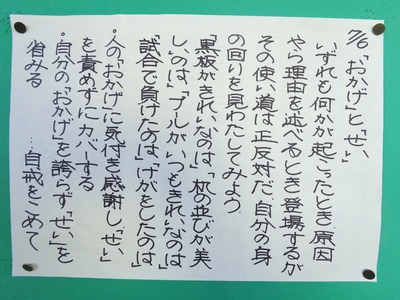 7/6 「おかげ」と「せい」
いずれも何かが起こったとき、原因
やら理由を述べるとき登場するが
その使い道は正反対だ。自分の身
の回りを見わたしてみよう。
「黒板がきれいなのは」「机の並びが美
しいのは」「プールがいつもきれいなのは」
「試合で負けたのは」「けがをしたのは」
・人の「おかげ」に気付き感謝し「せい」
を責めずにカバーする
・自分の「おかげ」を誇らず「せい」を
省みる ・・・自戒をこめて